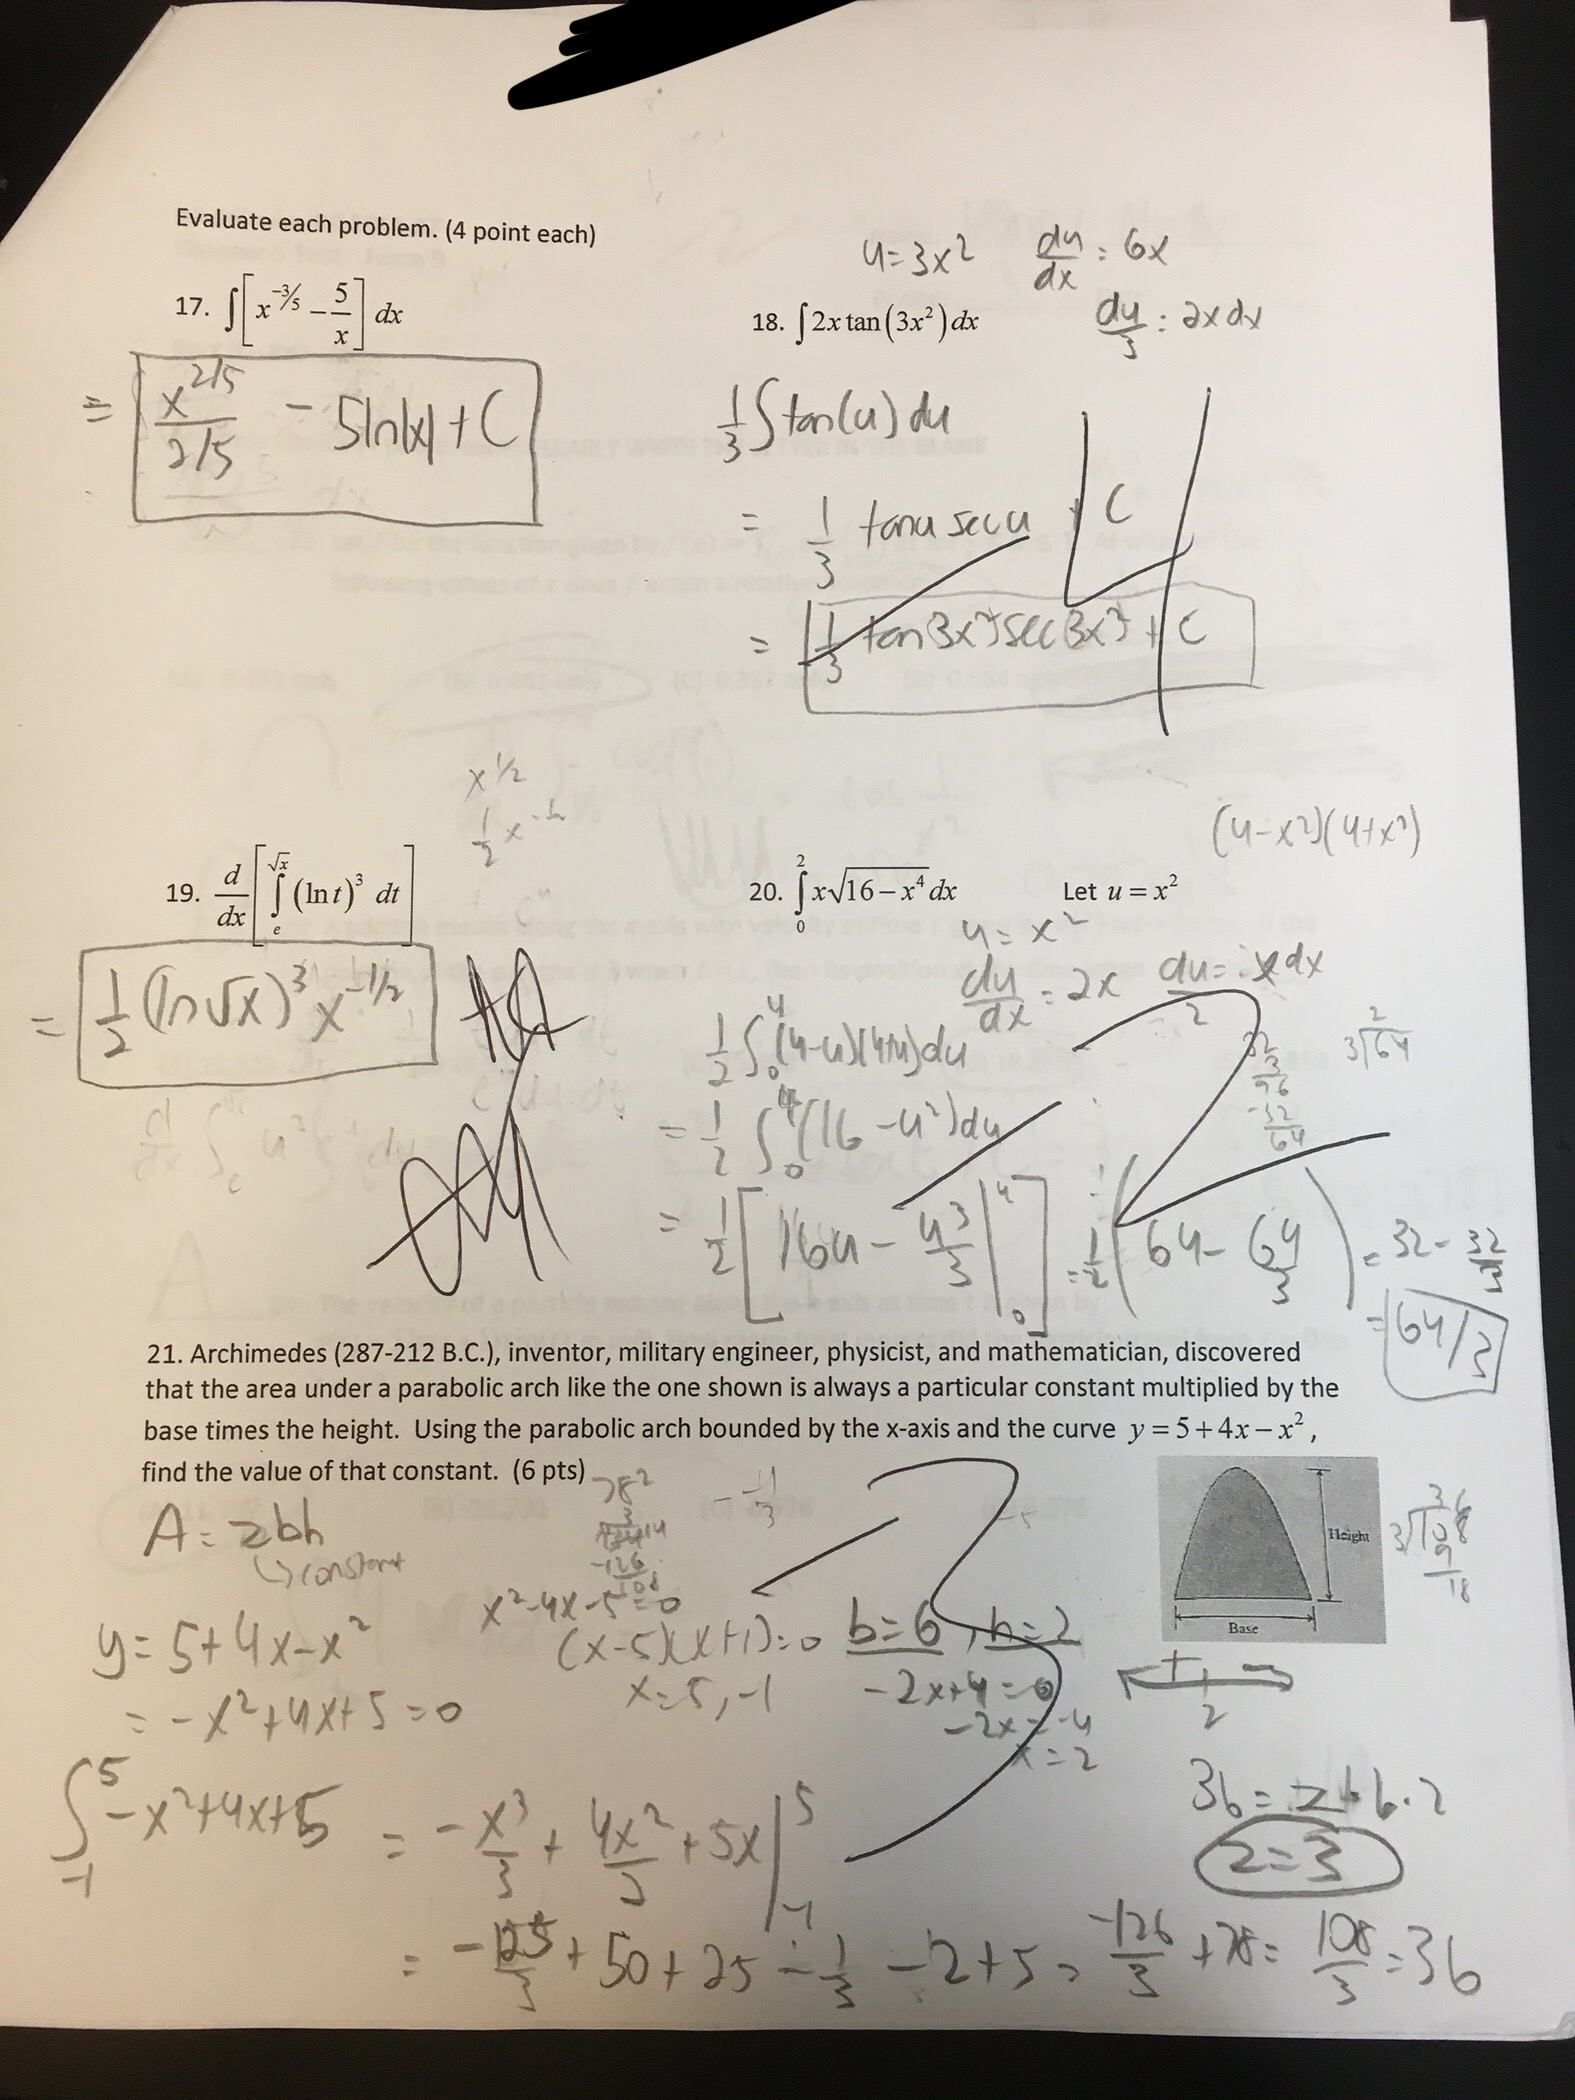 Evaluate each problem. (4 point each)
17. ∫[x^(-3/5) − 5/x] dx
= x^(2/5)/(2/5) − 5ln|x| + C
u = 3x² du/dx = 6x
18. ∫2x tan(3x²) dx
du/3 = 2x dx
1/3 ∫tan(u) du
= 1/3 tanu secu + C
= 1/3 tan3x² sec(3x² + C
x^(1/2)
19. d/dx [∫_e^√x (ln t)³ dt]
= 1/2 (ln√x)³ x^(-1/2)
(4−x²)(4+x²)
20. ∫_0^2 x√(16−x⁴) dx Let u = x²
u = x²
du/dx = 2x du/2 = x dx
1/2 ∫_0^4 (4−u)(4+u) du
= 1/2 ∫_0^4 (16 − u²) du
= 1/2 [16u − u³/3 |_0^4] = 1/2 (64 − 64/3) = 32 − 32/3
= 64/3
3√64
21. Archimedes (287-212 B.C.), inventor, military engineer, physicist, and mathematician, discovered
that the area under a parabolic arch like the one shown is always a particular constant multiplied by the
base times the height. Using the parabolic arch bounded by the x-axis and the curve y = 5 + 4x − x²,
find the value of that constant. (6 pts)
Height
Base
A = zbh
↳ constant
y = 5 + 4x − x²
= −x² + 4x + 5 = 0
x² − 4x − 5 = 0
(x−5)(x+1) = 0
x = 5, −1
b = 6, h = 2
−2x + 4 = 0
−2x = −4
x = 2
+ −
2
∫_-1^5 −x² + 4x + 5 = −x³/3 + 4x²/2 + 5x |_-1^5
= −125/3 + 50 + 25 − 1/3 − 2 + 5 = −126/3 + 78 = 108/3 = 36
36 = z · 6 · 2
z = 3